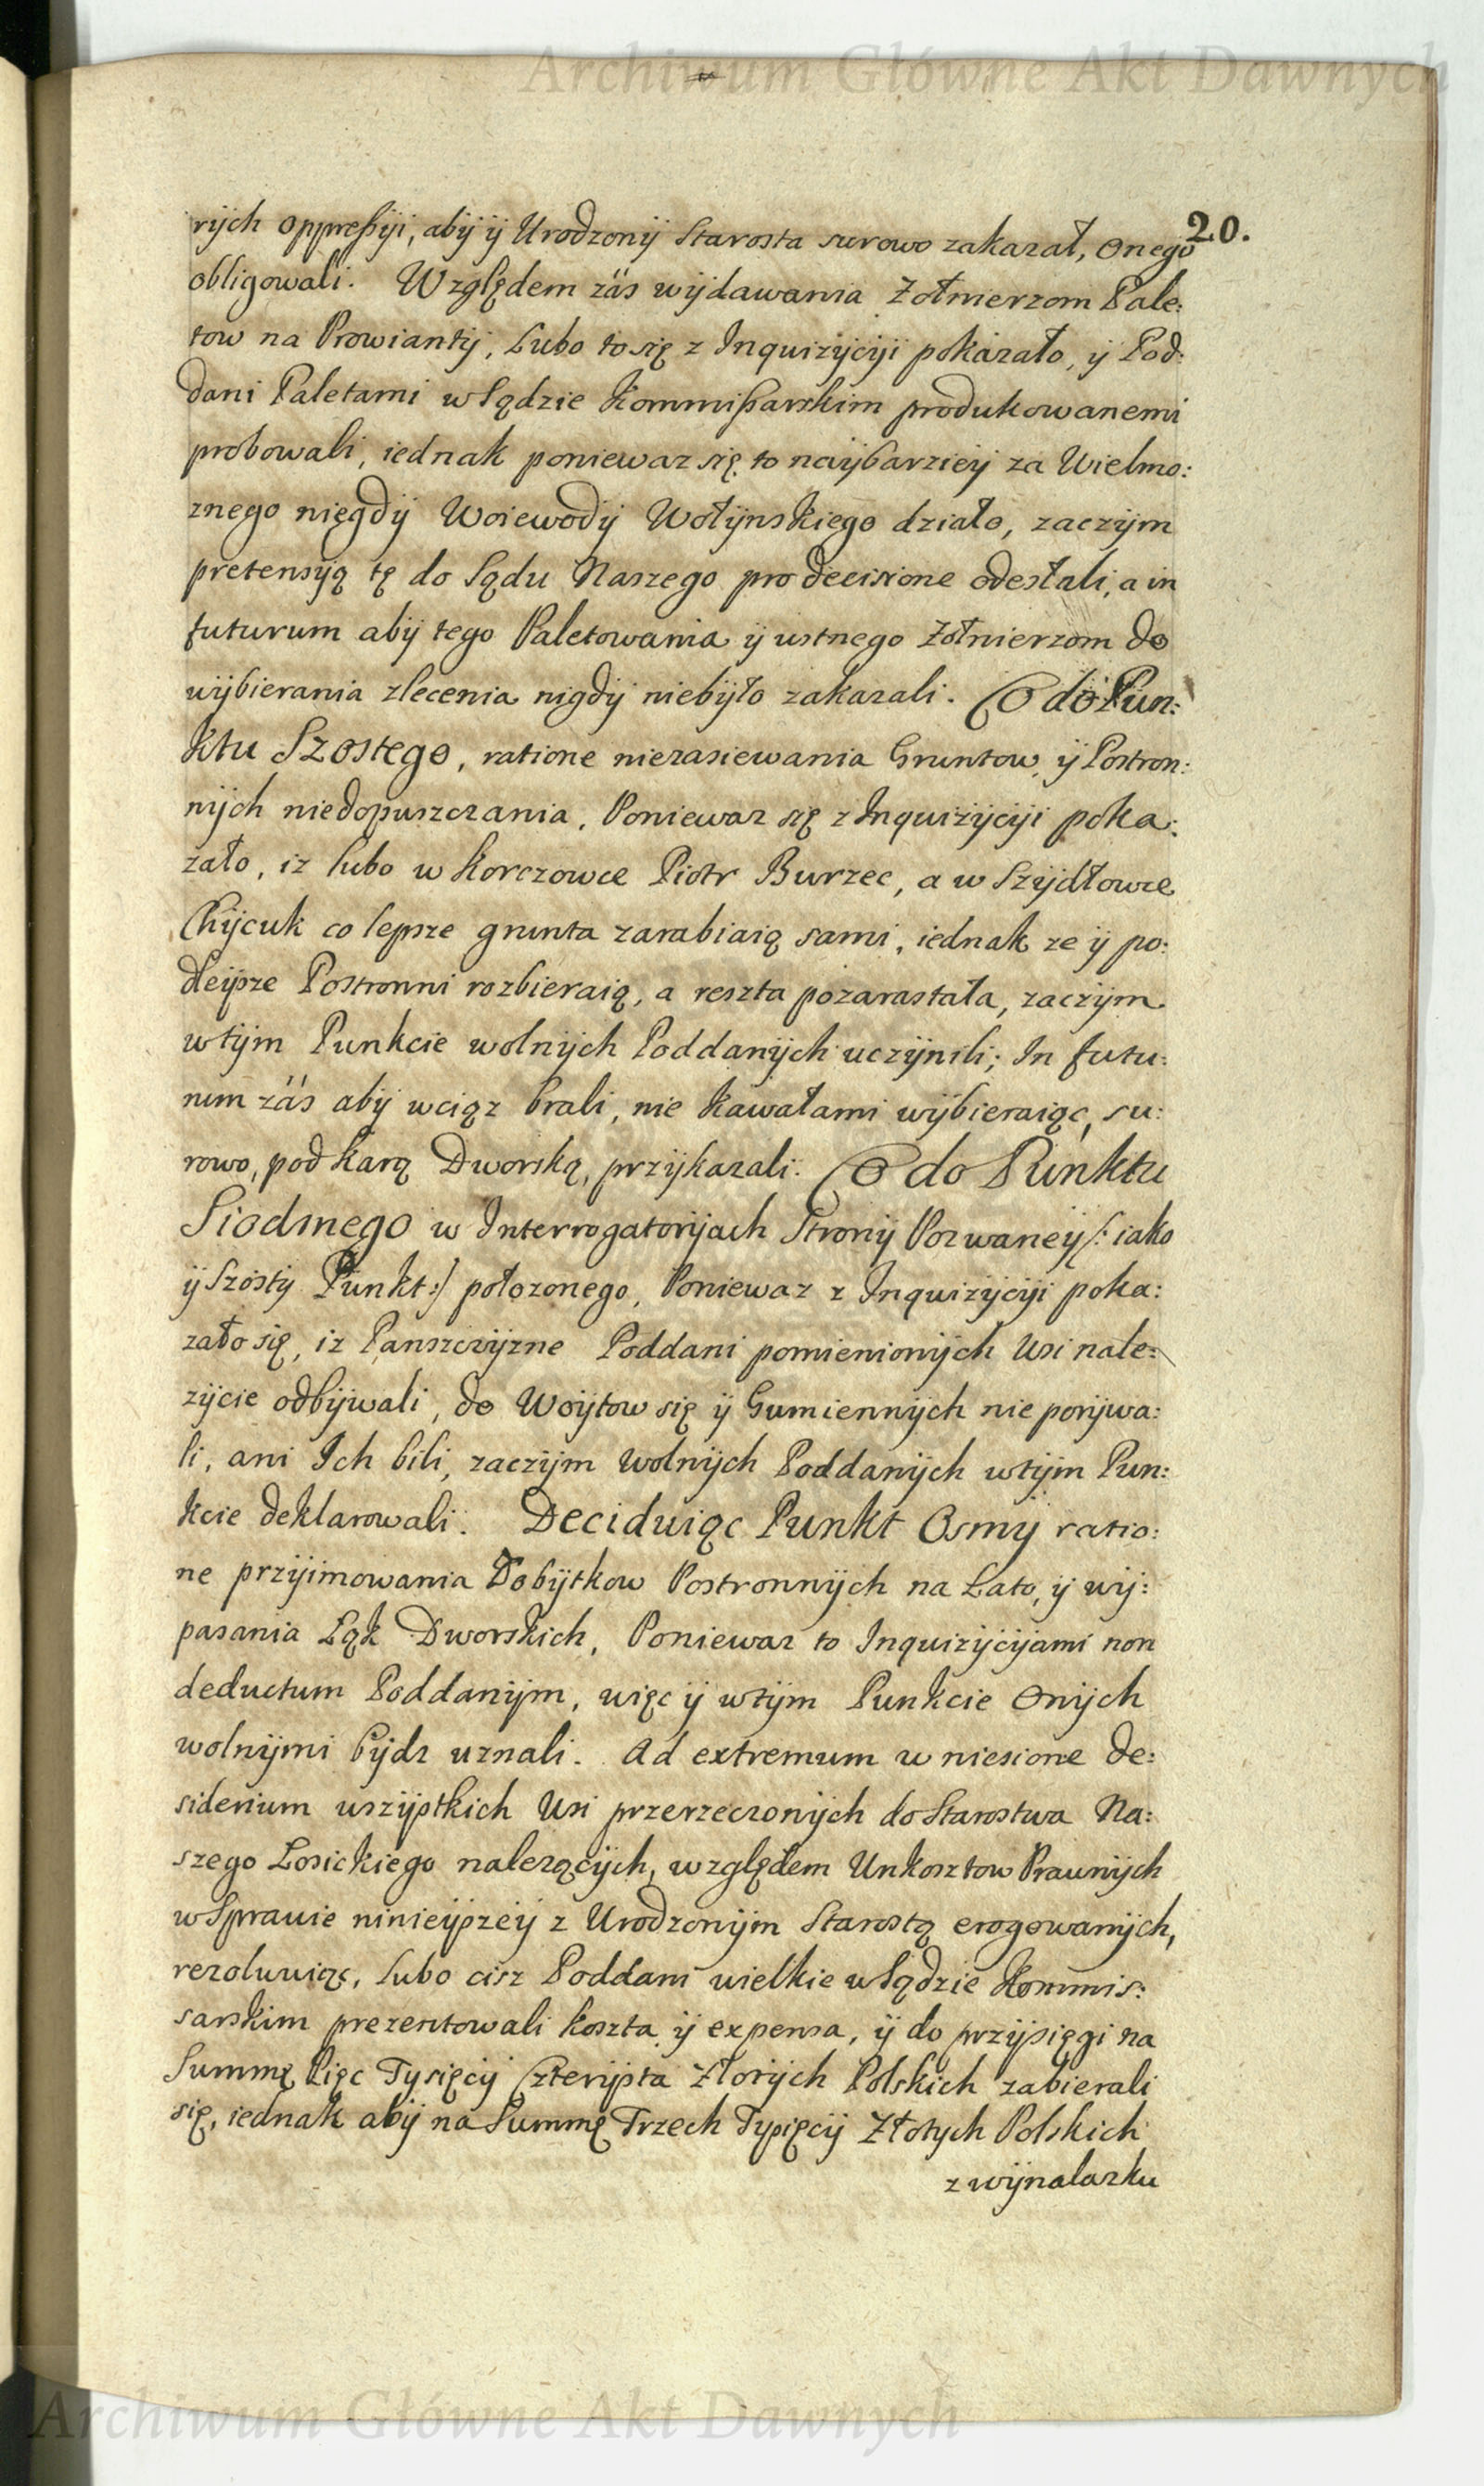 Archiwum Główne Akt Dawnych
20.
rÿch oppreßÿi, abÿ ÿ Urodzonÿ Starosta surowo zakazał, onego
obligowali. Względem zaś wÿdawania Zołnierzom Pale:
tow na Prowiantÿ, Lubo to się z Inquizÿcÿi pokazało, ÿ Pod:
dani Paletami w Sądzie Kommißarskim produkowanemi
probowali, iednak poniewaz się to naÿbarzieÿ za Wielmo:
znego niegdÿ Woiewodÿ Wołÿnskiego działo, zaczÿm
pretensÿą tę do Sądu Naszego pro decisione odesłali, a in
futurum abÿ tego Paletowania ÿ ustnego Zołnierzom do
wÿbierania zlecenia nigdÿ niebÿło zakazali. Co do Pun:
ktu Szostego, ratione niezasiewania Gruntow ÿ Postron:
nÿch niedopuszczania, Poniewaz się z Inquizÿcÿi poka:
zało, iz lubo w Korczowce Piotr Burzec, a w Szÿdłowce
Chÿcuk co lepsze grunta zarabiaią sami, iednak ze ÿ po:
dleÿsze Postronni rozbieraią, a reszta pozarastała, zaczÿm
w tÿm Punkcie wolnÿch Poddanÿch uczÿnili; In futu:
rum zaś abÿ wciąz brali, nie kawałami wÿbieraiąc, su:
rowo, pod karą Dworską, przÿkazali. Co do Punktu
Siodmego w Interrogatorÿach Stronÿ Pozwaneÿ /: iako
ÿ Szostÿ Punkt :/ połozonego, Poniewaz z Inquizÿcÿi poka:
zało się, iz Panszczÿzne Poddani pomienionÿch Wsi nale:
zÿcie odbÿwali, do Woÿtow się ÿ Gumiennÿch nie porÿwa:
li, ani Ich bili, zaczÿm wolnÿch Poddanÿch w tÿm Pun:
kcie deklarowali. Deciduiąc Punkt Osmÿ ratio:
ne przÿimowania Dobÿtkow Postronnÿch na Lato, ÿ wÿ:
pasania Łąk Dworskich, Poniewaz to Inquizÿcÿami non
deductum Poddanÿm, więc ÿ w tÿm Punkcie Onÿch
wolnÿmi bÿdz uznali. Ad extremum wniesione de:
siderium wszÿstkich Wsi przerzeczonÿch do Starostwa Na:
szego Łosickiego nalezącÿch, względem Unkosztow Prawnÿch
w Sprawie ninieÿszeÿ z Urodzonÿm Starostą erogowanÿch,
rezolwuiąc, lubo cisz Poddani wielkie w Sądzie Kommis:
sarskim prezentowali koszta ÿ expensa, ÿ do przÿsięgi na
Summę Pięc Tysięcÿ Czterÿsta Złotÿch Polskich zabierali
się, iednak abÿ na Summę Trzech Tysięcÿ Złotych Polskich
z wÿnalazku
Archiwum Główne Akt Dawnych